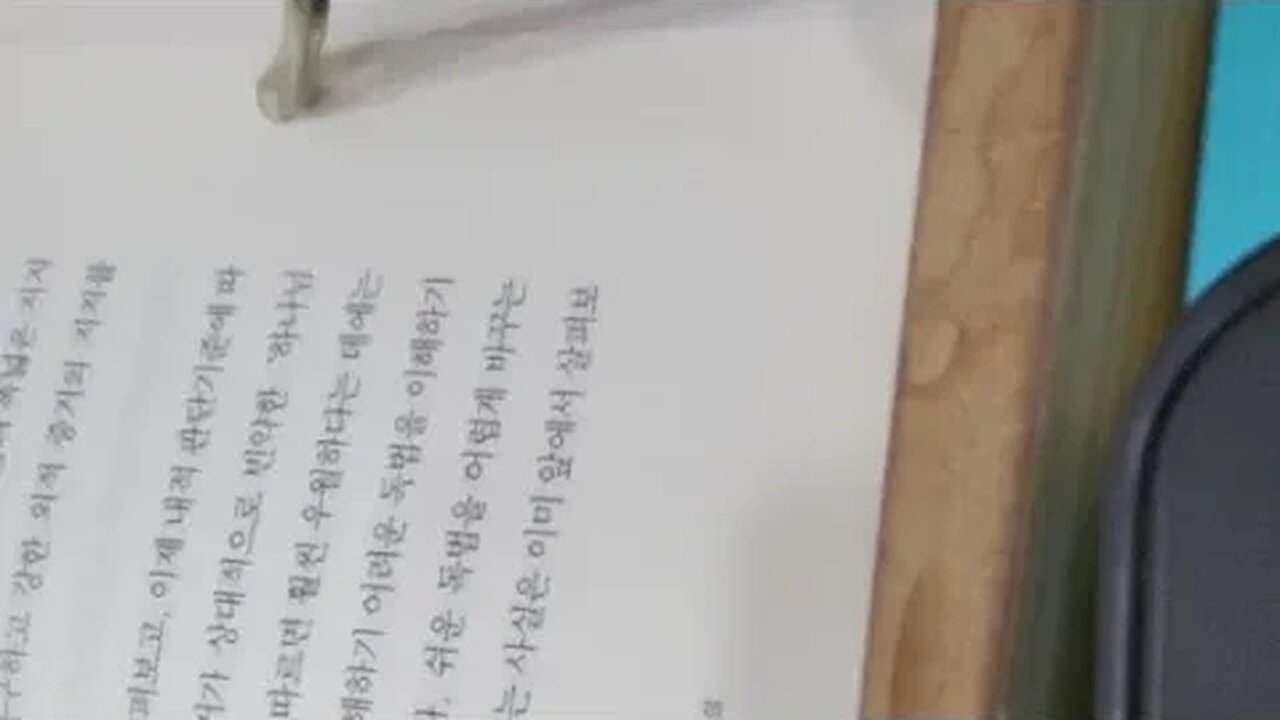 독법은 지지
구하고 강한 외적 증거의 지지를
펴보고, 이제 내적 판단기준에 따
가 상대적으로 빈약한 하나님
따르면 훨씬 우월하다는 데에는
해하기 어려운 독법을 이해하기
쉬운 독법을 어렵게 바꾸는
는 사실은 이미 앞에서 살펴본